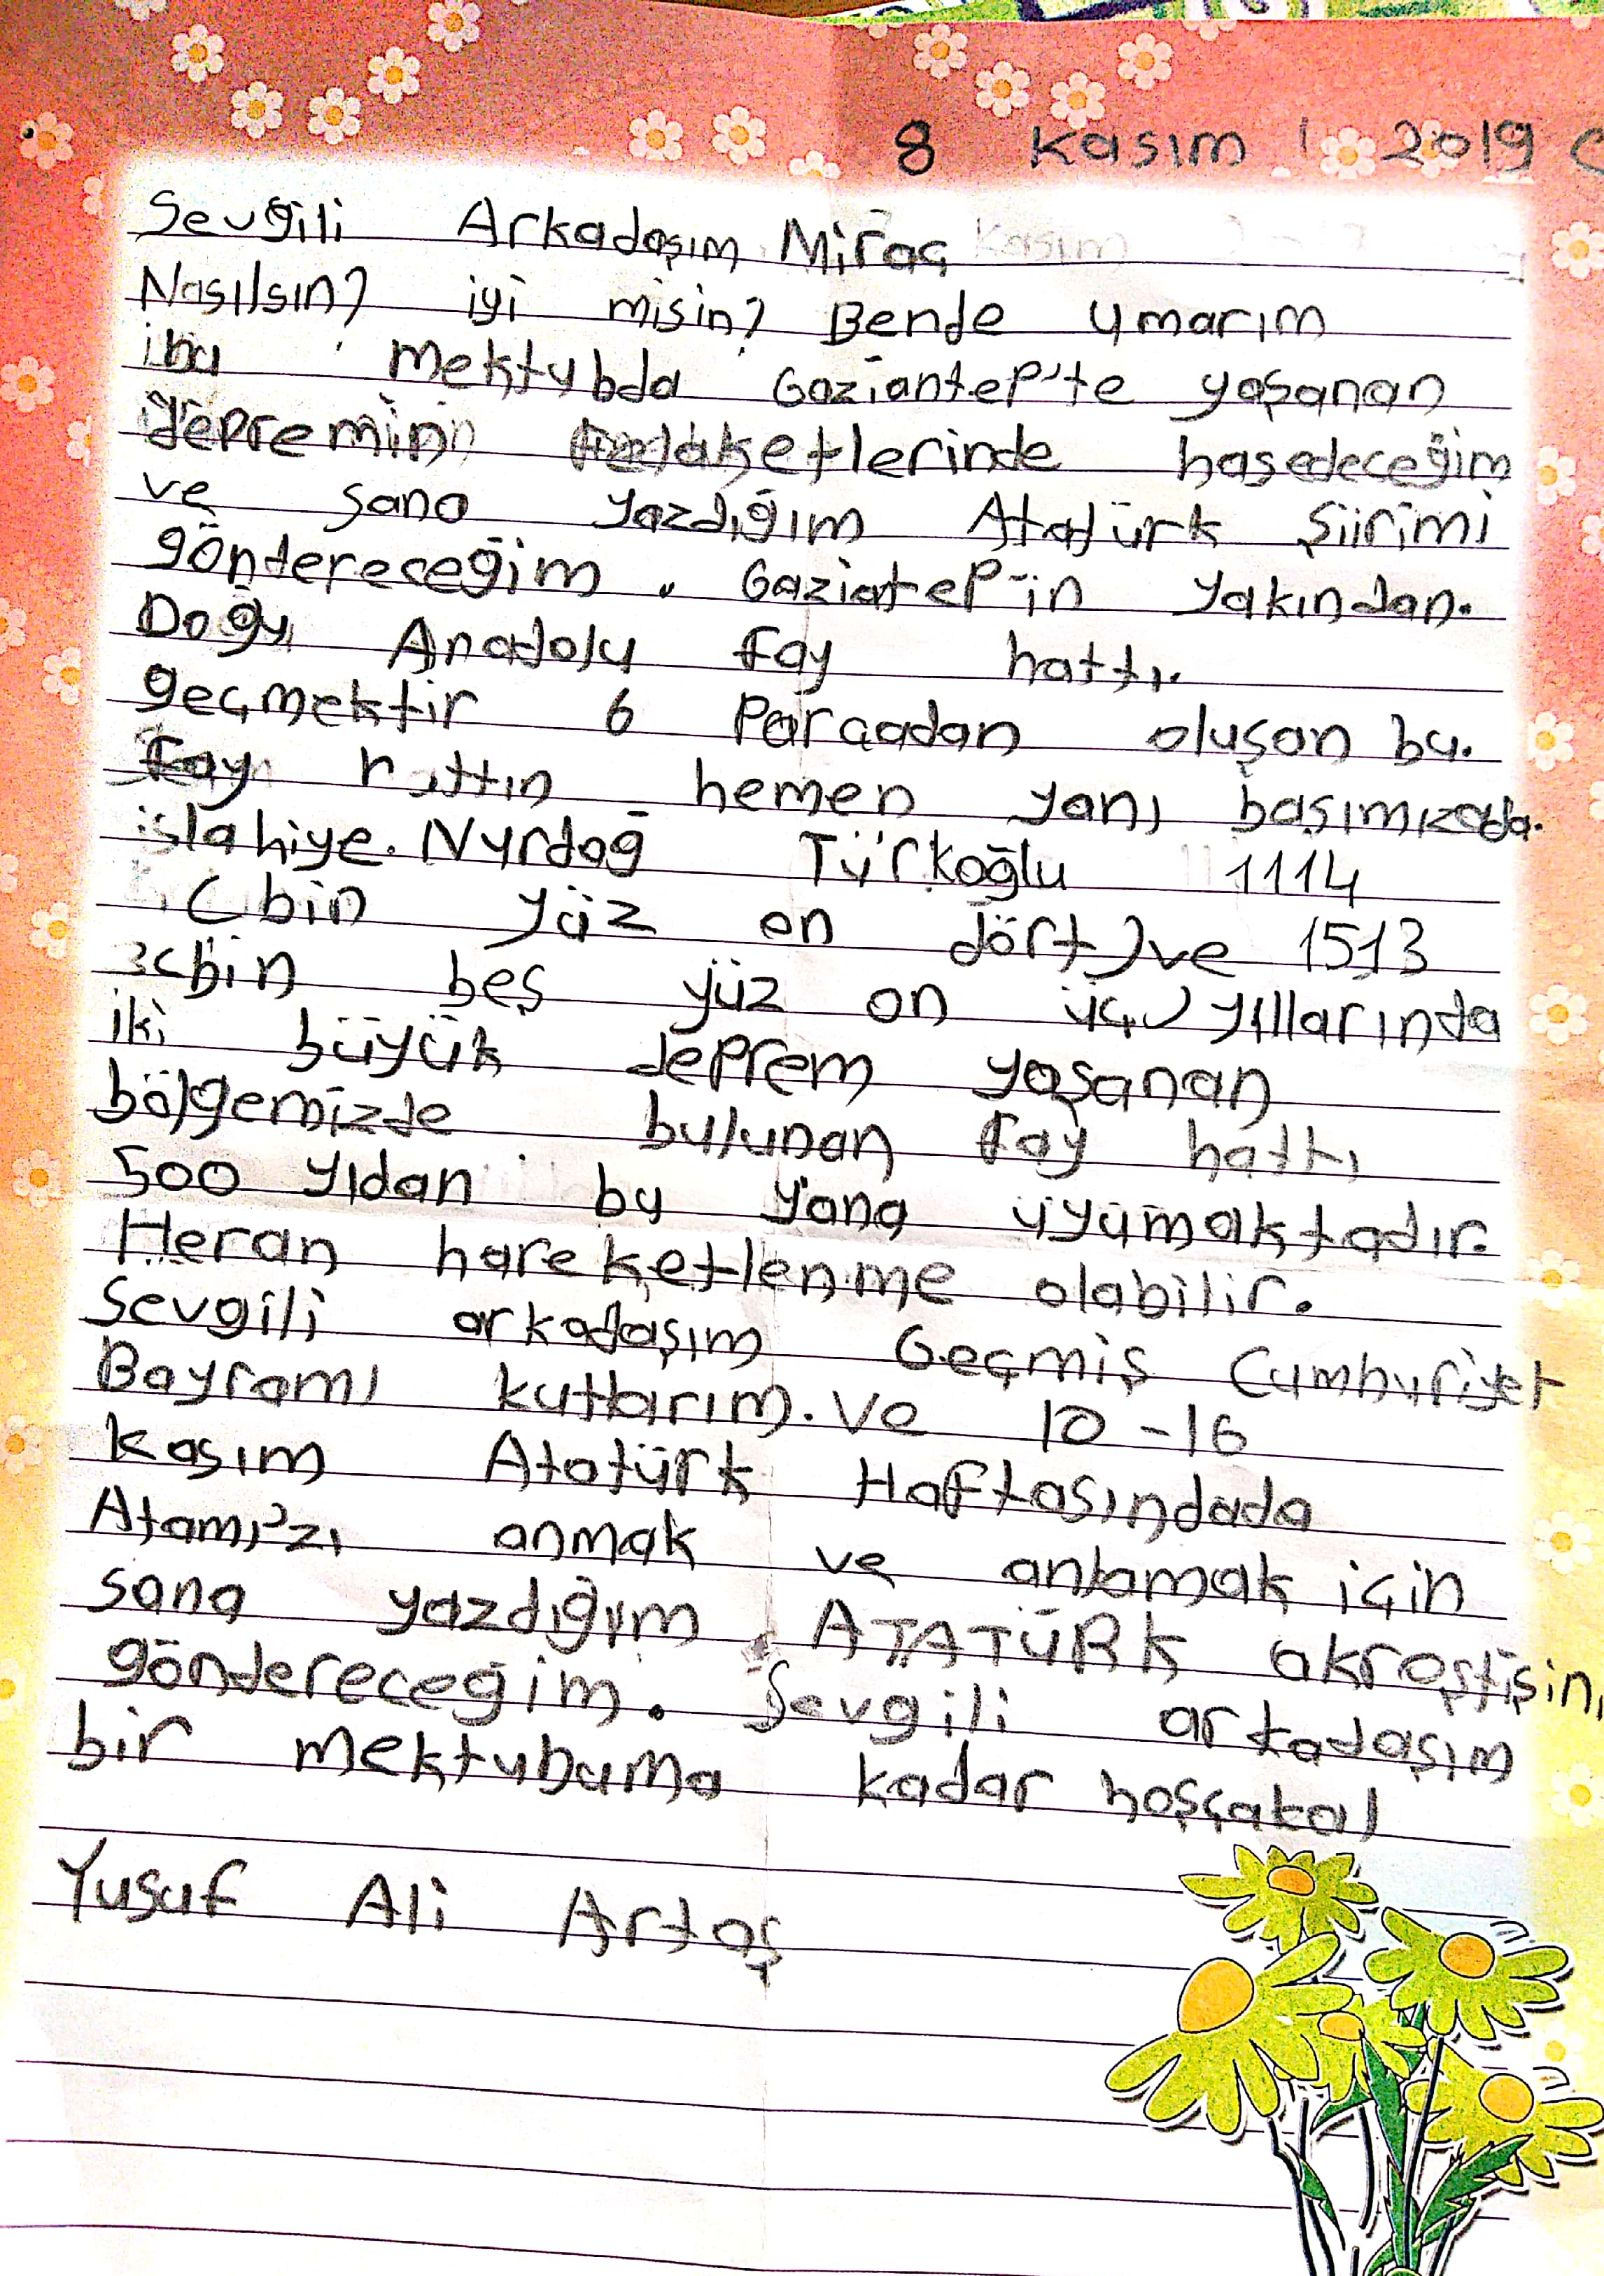 8 Kasım 2019
Sevgili Arkadaşım Miraç
Nasılsın? iyi misin? Bende umarım
bu mektubda Gaziantep'te yaşanan
depremin felaketlerinde hasedeceğim
ve sana yazdığım Atatürk Şiirimi
göndereceğim. Gaziatep'in yakından.
Doğu Anadolu fay hattı.
geçmektir 6 Parçadan oluşan bu.
fay hattın hemen yanı başımızada.
islahiye. Nurdağ Türkoğlu 1114
(bin yüz on dört) ve 1513
(bin beş yüz on üç) yıllarında
iki büyük deprem yaşanan
bölgemizde bulunan fay hattı
500 yıdan bu yana uyumaktadır.
Heran hareketlenme olabilir.
Sevgili arkadaşım Geçmiş Cumhuriyet
Bayramı kutlarım. ve 10-16
kasım Atatürk Haftasındada
Atamı'zı anmak ve anlamak için
sana yazdığım ATATÜRK akroştişin
göndereceğim. Sevgili arkadaşım
bir mektubuma kadar hoşçakal
Yusuf Ali Artaş